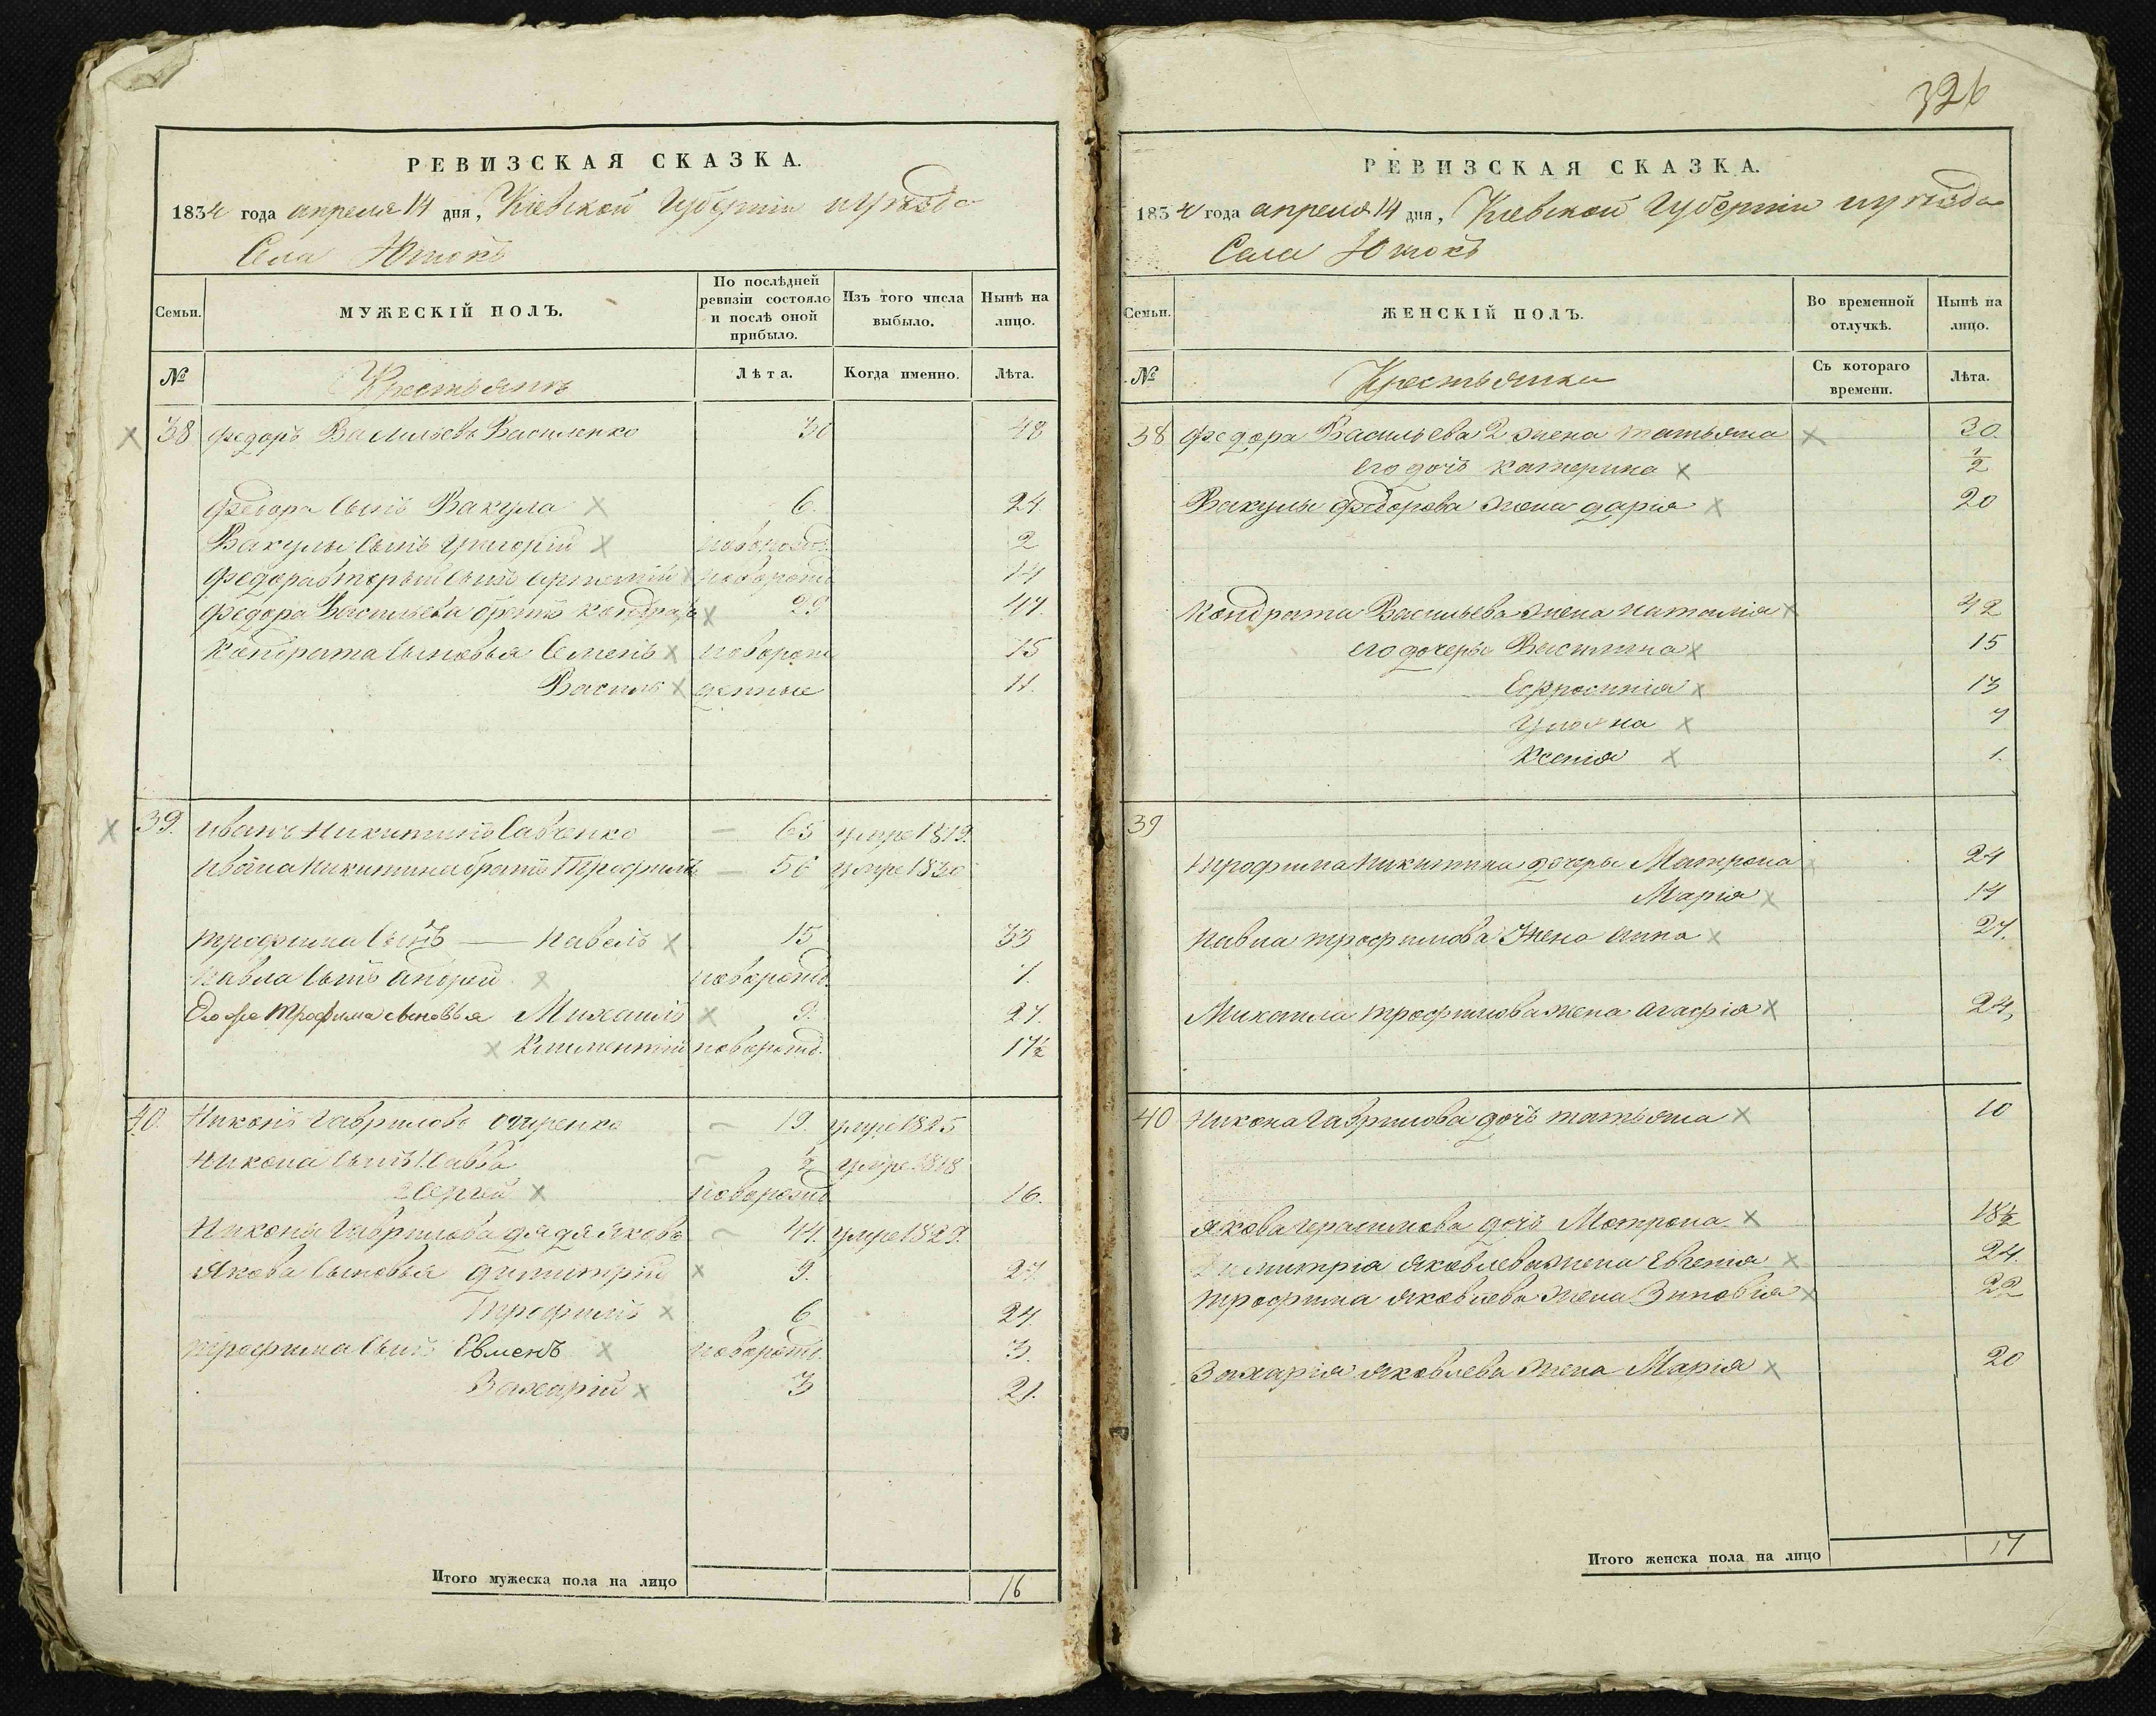 РЕВИЗСКАЯ СКАЗКА.
1834 года апреля 14 дня, Кіевской Губерніи и уѣзда
Села Юшокъ
Семьи.
МУЖЕСКІЙ ПОЛЪ.
По послѣдней ревизіи состояло и послѣ оной прибыло.
Изъ того числа выбыло.
Нынѣ на лицо.
№
Крестьянъ
Лѣта.
Когда именно.
Лѣта.
38 Федоръ Васильевъ Василенко 30 48
Федора сынъ Вакула 6. 24
Вакулы сынъ Григорій новорожд. 2
Федора вторый сынъ Артемій новорожд 14
Федора Васильева братъ Кондратъ 29 47.
Кондрата сыновья Семенъ новорож 15
Василь денные 11.
39. Иванъ Никитинъ Савченко — 65 умре 1819.
Ивана Никитина братъ Трофимъ — 56 умре 1830
Трофима сынъ — Павелъ 15 33
Павла сынъ Андрей новорожд. 1.
Его же Трофима сыновья Михаилъ 9. 27.
Климентій новорожд. 17½
40. Никонъ Гавриловъ 19. умре 1825
Никона сынъ 1 Савва ½ умре 1818
2 Сергей новорожд 16.
Никона Гаврилова дядя Яковъ 44. умре 1829.
Якова сыновья Димитрій 9. 27
Трофимъ 6 24.
Трофима сынъ Евменъ новорожд. 3.
Захарій 3 21.
Итого мужеска пола на лицо 16
326
РЕВИЗСКАЯ СКАЗКА.
1834 года апреля 14 дня, Кіевской Губерніи и уѣзда
Села Юшокъ
Семьи.
ЖЕНСКІЙ ПОЛЪ.
Во временной отлучкѣ.
Нынѣ на лицо.
№
Крестьянки
Съ котораго времени.
Лѣта.
38 Федора Васильева 2 жена Татьяна 30.
его дочь Катерина ½
Вакулы Федорова жена Дарія 20
Кондрата Васильева жена Наталія 42
его дочеры Василина 15
Ефросинія 13
Уляна 7
Ксенія 1.
39
Трофима Никитина дочеры Матрона 24
Марія 14
Павла Трофимова жена Анна 27.
Михаила Трофимова жена Агафія 24,
40 Никона Гаврилова дочь Татьяна 10
Якова Герасимова дочь Мотрона 18½
Димитрія Яковлева жена Евгенія 24.
Трофима Яковлева жена Зиновія 22
Захарія Яковлева жена Марія 20
Итого женска пола на лицо 17